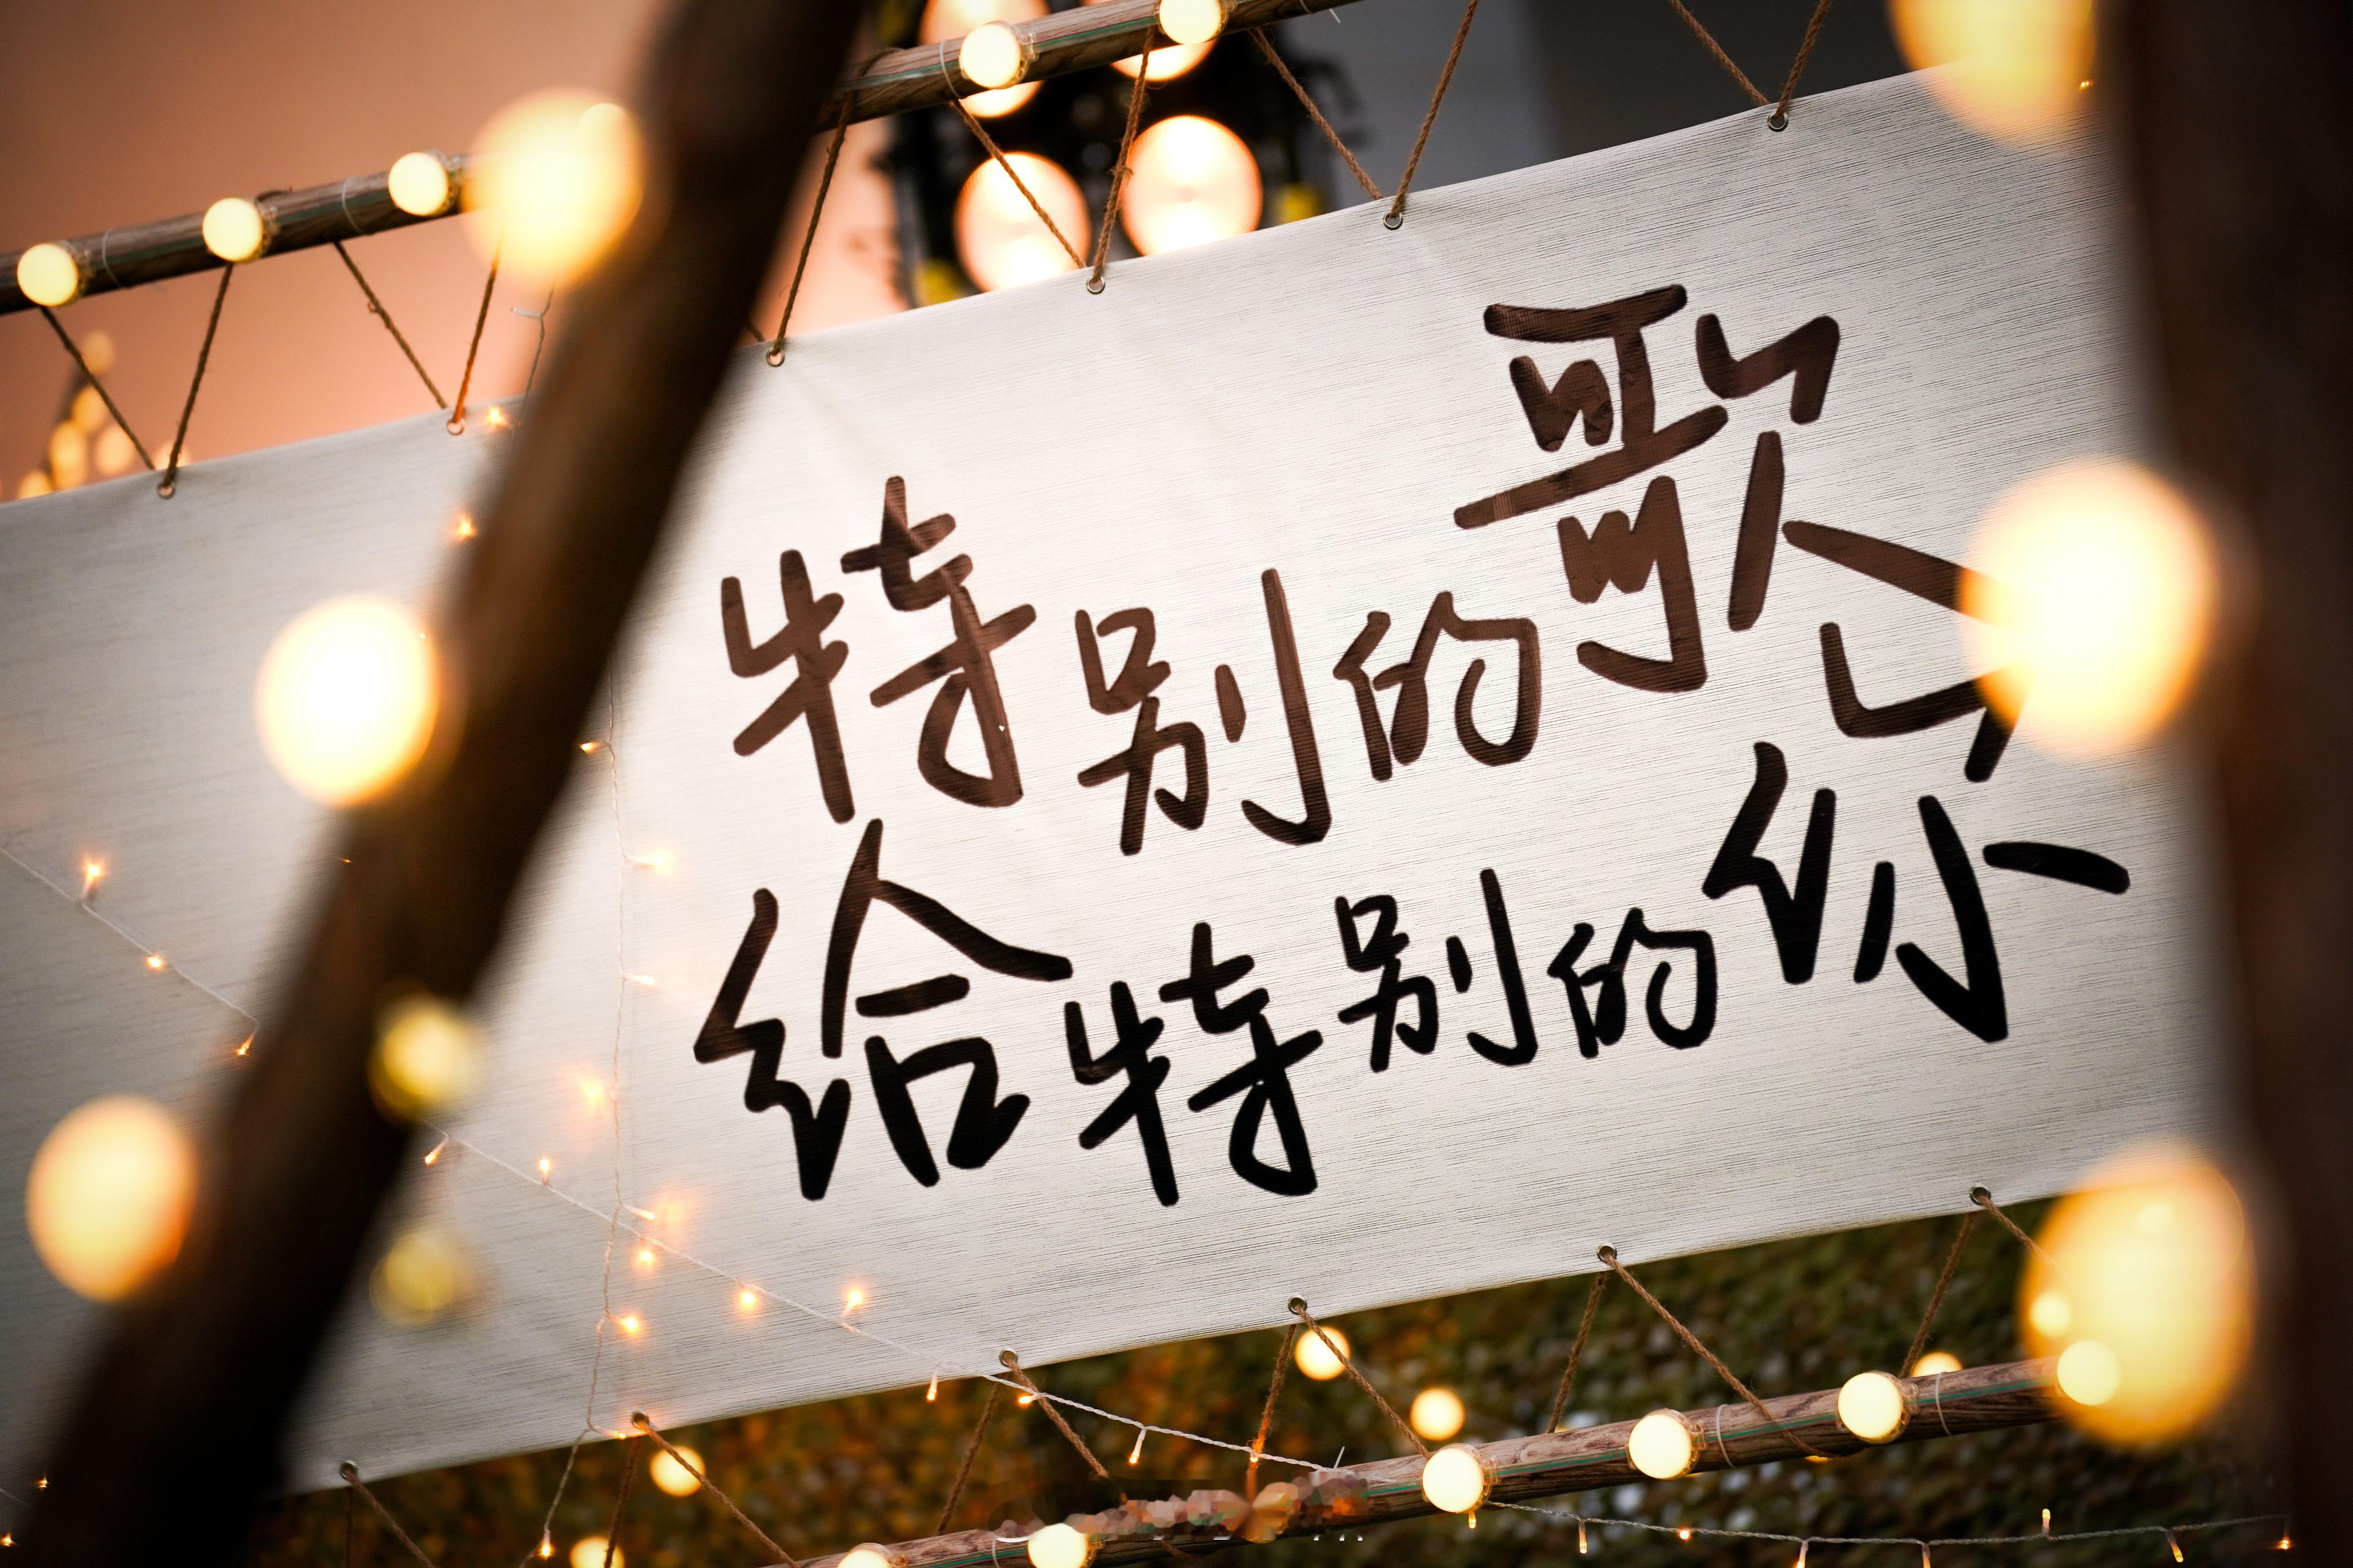 特别的歌
给特别的你